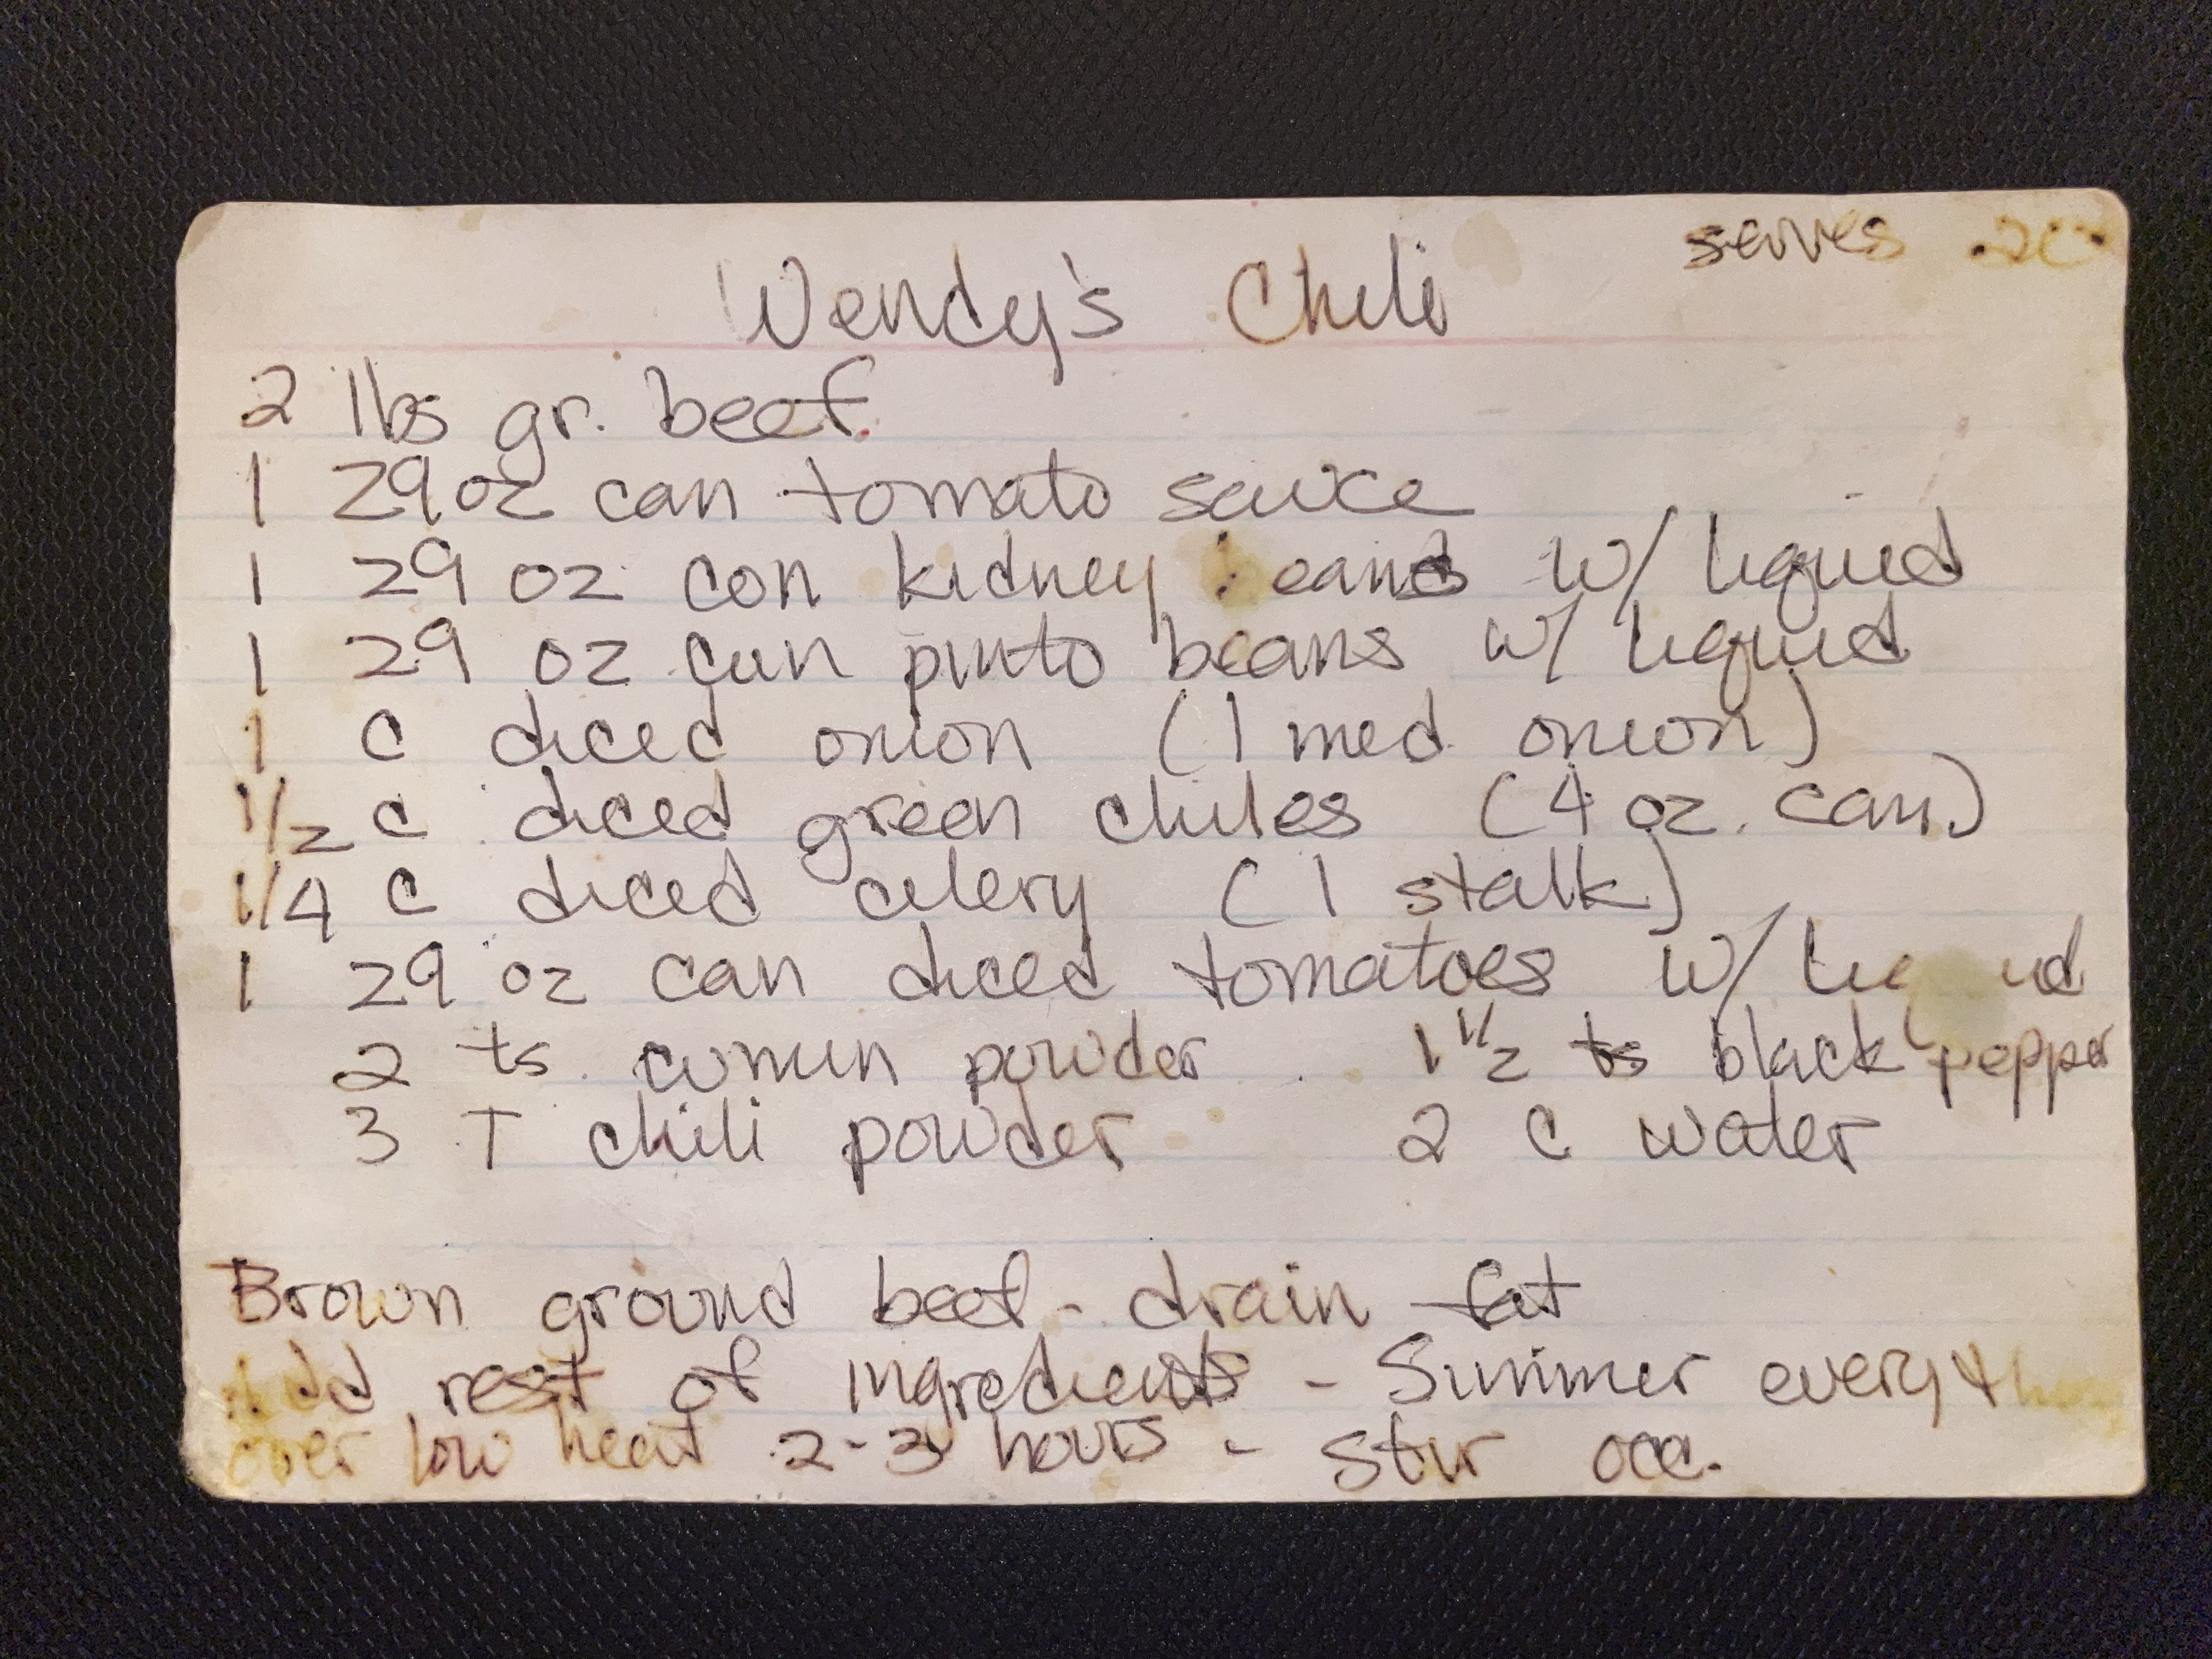 serves 20
Wendy's Chili
2 lbs gr. beef
1 29 oz can tomato sauce
1 29 oz can kidney beans w/ liquid
1 29 oz can pinto beans w/ liquid
1 c diced onion (1 med onion)
1/2 c diced green chiles (4 oz. can)
1/4 c diced celery (1 stalk)
1 29 oz can diced tomatoes w/ liquid
2 ts cumin powder 1 1/2 ts black pepper
3 T chili powder 2 c water
Brown ground beef - drain fat
Add rest of ingredients - Simmer everything
over low heat 2-3 hours - stir occ.